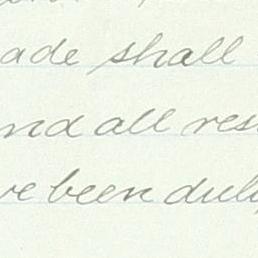 ade shall
nd all res
ve been duly